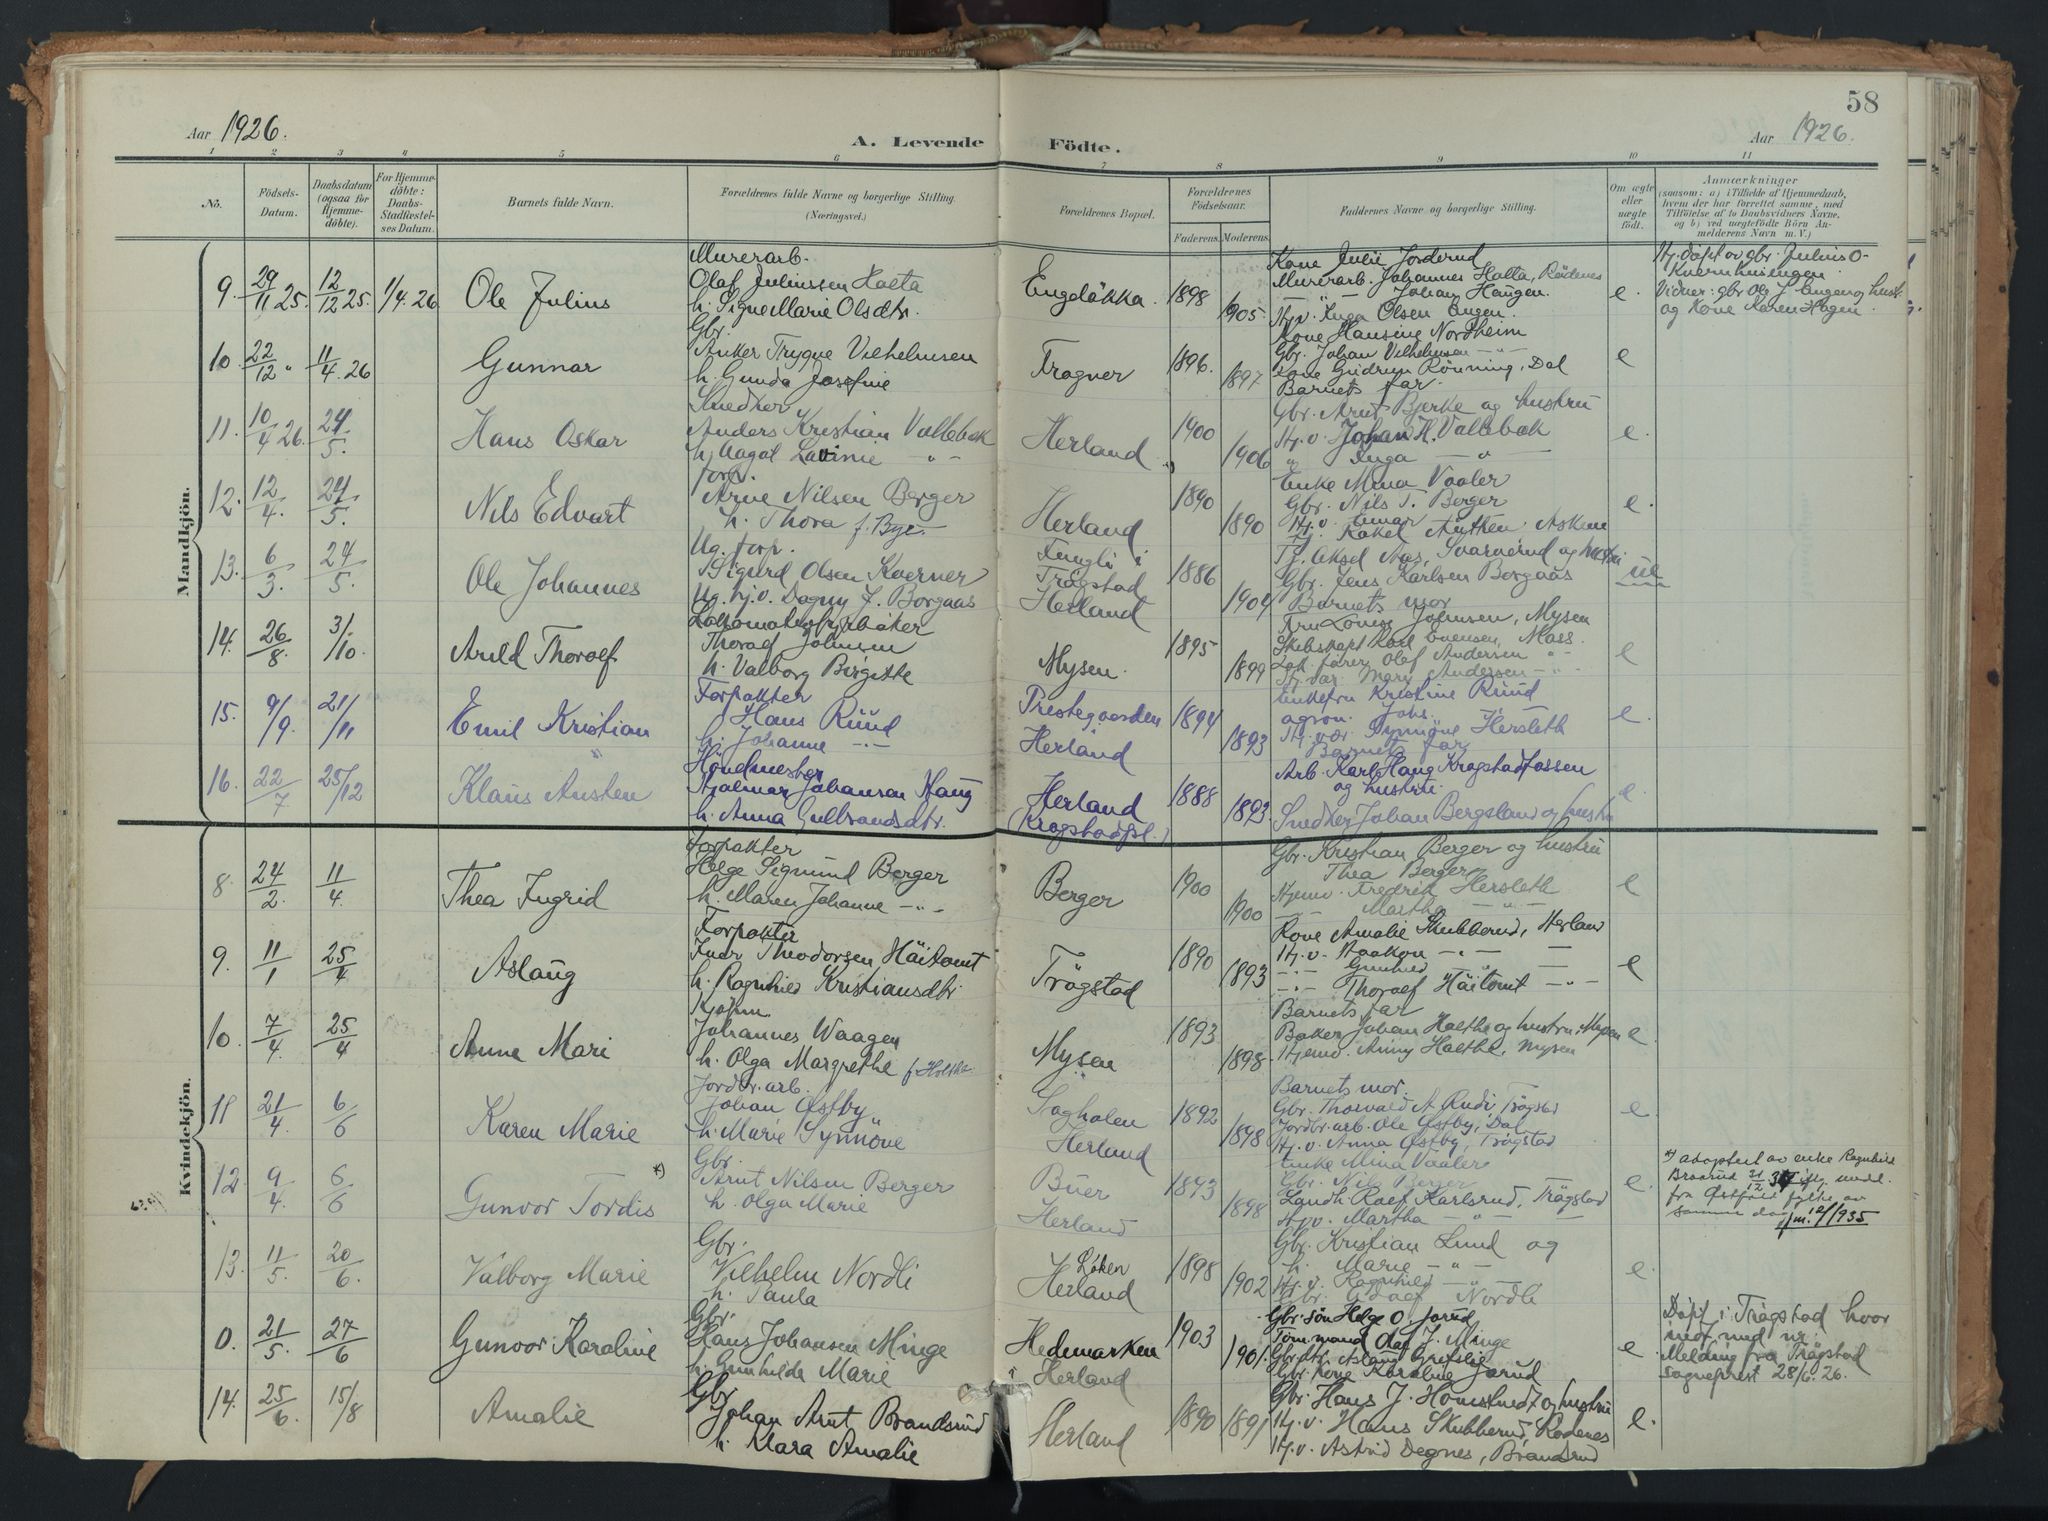 58
Aar 1926.
A. Levende Födte.
Aar 1926.
1 2 3 4 5 6 7 8 9 10 11
No.
Födsels-Datum.
Daabsdatum (ogsaa for Hjemme-döbte).
For Hjemme-döbte: Daabs-Stadfæstel-ses Datum.
Barnets fulde Navn.
Forældrenes fulde Navne og borgerlige Stilling. (Næringsvei.)
Forældrenes Bopæl.
Forældrenes Födselsaar.
Faderens. Moderens.
Faddernes Navne og borgerlige Stilling.
Om ægte eller uægte födt.
Anmærkninger
(saasom: a) i Tilfælde af Hjemmedaab, hvem der har forrettet samme, med Tilföielse af to Daabsvidners Navne, og b) ved uægtefödte Börn Anmelderens Navn m. V.)
Mandkjön.
9. 29/11 25. 12/12 25. 1/4. 26 Ole Julius
Murerarb.
Olaf Juliussen Haeta
h. Signe Marie Olsdtr.
Engeløkka. 1898 1905.
Kone Julie Jorderud
Murerarb. Johannes Hatta, Rödenes
Johan Haugen.
Hj.v. Inga Olsen Engen.
e.
Hj.døpt av gbr. Julius O.
Kvernhusengen.
Vidner: gbr Ole J. Engen og hustr.
og Kone Karen Hagen.
10. 22/12 " 11/4. 26 Gunnar
Gbr.
Anker Trygve Vilhelmsen
h. Gunda Josefine
Frogner 1896. 1897
Kone Hansine Nordheim
Gbr. Johan Vilhelmsen
Kone Gudrun Rönning, Dal
Barnets far.
e
11. 10/4 26. 24/5. Hans Oskar
Snedker
Anders Kristian Vallebæk
h. Aagot Lavinie - " -
Herland 1900 1906
Gbr. Arnt Bjerke og hustru
Hj.v. Johan H. Vallebæk
" Inga - " -
e.
12. 12/4. 24/5. Nils Edvart
forp.
Arne Nilsen Berger
h. Thora f. Bye
Herland 1890 1890
Enke Mina Vaaler
Gbr. Nils T. Berger
Hj.v. Einar
Rakel Askim
e.
13. 6/3. 24/5. Ole Johannes
Ug. forp.
Sigurd Olsen Kverner
Ug. hj.v. Dagny J. Borgaas
Fungli i
Trögstad
Herland
1886 1904
Tj. Aksel Aas, Svarverud og hustru
Gbr. Jens Karlsen Borgaas
Barnets mor
ue
14. 26/8. 3/10. Arild Thoralf
Lokomotivfyrbøter
Thoralf Johnsen
h. Valborg Birgitte
Mysen. 1895 1899
Fru Lovise Johnsen, Mysen
Skibskapt Karl Svensen, Moss.
Lok.fører Olaf Andersen - " -
Mary Andersen - " -
e
15. 9/9. 21/11 Emil Kristian
Forpakter
Hans Ruud
h. Johanne - " -
Prestegaarden
Herland
1894 1893
Enkefru Kristine Ruud
agron. Johs.
Synnöve Hersleth
Barnets far
e.
16. 22/7 25/12 Klaus Austen
Hjalmar Johansen Haug
h. Anna Gulbrandsdtr.
Herland
(Krogstadfjel.)
1888 1893.
Arb. Karl Haug Krogstadfossen
og hustru.
Snedker Johan Bergsland og hustru
e
Kvindekjön.
8. 24/2. 11/4. Thea Ingrid
Forpakter
Helge Sigmund Berger
h. Maren Johanne - " -
Berger 1900 1900
Gbr. Kristian Berger og hustru
Thea Berger
Hjemv. Fredrik Hersleth
Martha - " -
e
9. 11/1 25/4 Aslaug
Forpakter
Ivar Theodorsen Häitomt
h. Ragnhild Kristiansdtr.
Trögstad 1890 1893
Kone Amalie Skubberud, Herland
Hj.v. Haakon - " -
- " - Gunhild
- " - Thoralf Häitomt - " -
e
10. 7/4. 25/4 Anne Mari
Kjøbm.
Johannes Waagen
h. Olga Margrethe
Mysen 1893 1898.
Barnets far
Baker Johan Haethe og hustru, Mysen
Hjemv. Anny Haethe, Mysen
e
11 21/4. 6/6 Karen Marie
Jordbr.arb.
Johan Østby
h. Marie Synnöve
Herland
1892 1898
Barnets mor.
Gbr. Thorvald A Rudi, Trögstad
Jordbr.arb. Ole Østby, Dal
Hj.v. Anna Østby, Trögstad
e.
12. 9/4. 6/6 Gunvor Tordis *)
Gbr.
Arnt Nilsen Berger
h. Olga Marie
Buer
Herland
1893 1898
Enke Mina Vaaler
Gbr. Nils Berger
Landh. Ralf Karlsrud, Trögstad
Hj.v. Martha - " -
e.
*) adoptert av enke Ragnhild
Braarud 31/12 34 iflg. medd.
fra Østfold fylke av
samme dag
1935
13. 11/5. 20/6. Valborg Marie
Gbr.
Vilhelm Nordli
h. Paula
Løken
Herland
1898 1902
Gbr. Kristian Lund og
h. Marie - " -
Hj.v. Ragnhild - " -
Gbr. Nordli
e.
0. 21/5. 27/6 Gunvor Karoline
Gbr.
Hans Johansen Minge
h. Gunhilde Marie
Hedemarken
i Herland
1903 1901.
Gbr.søn Helge O. Jorud
Töm.mand Olaf J. Minge
Gbr.dtr. Aslaug
Gbr. kone Karoline Jorud
e.
Døpt i Trögstad hvor
indf. med nr.
Melding fra Trögstad
sogneprest 28/6. 26.
14. 25/6. 15/8 Amalie
Gbr
Johan Arnt Brandsrud
h. Klara Amalie
Herland 1890 1891
Gbr. Hans J. Homslund og hustru
Hj.v. Hans Skubberud, Rödenes
Hj.v. Astrid Degnes, Brandsrud
e.